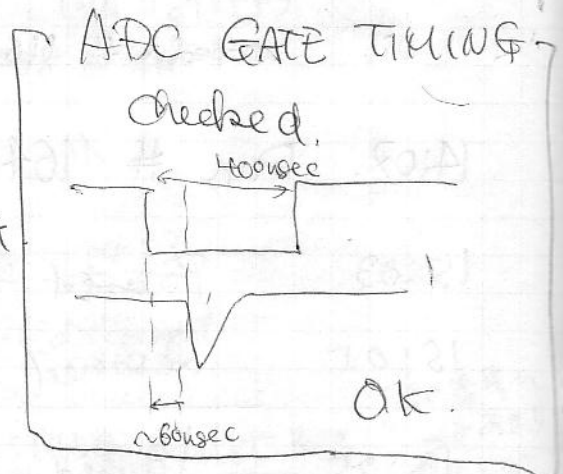 ADC GATE TIMING
checked.
400nsec
~60nsec
OK.